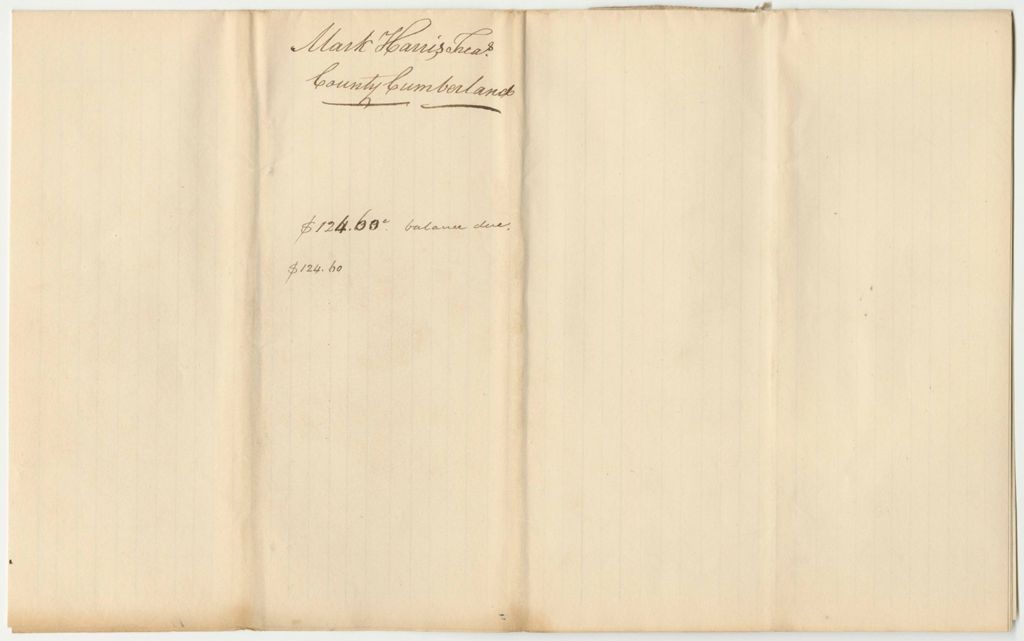 Mark Harris Treas.
County Cumberland
$124.60c. balance due.
$124.60